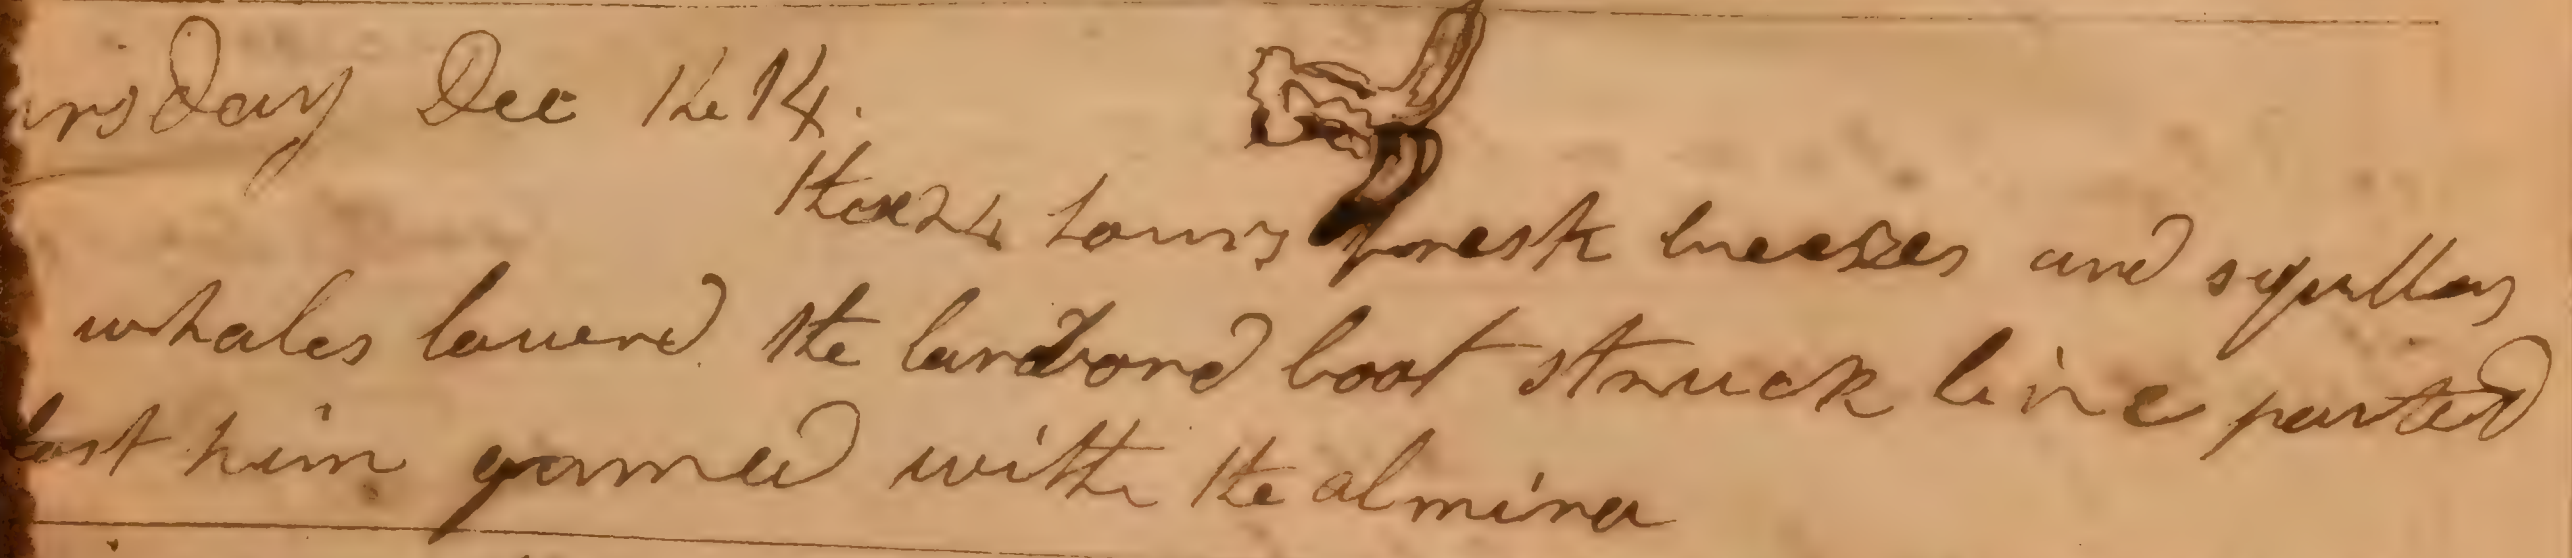 ursday Dec the 14.
these 24 hours fresk breezes and squllay
whales lauerd the larbord boat struck line parted
lost him gamed with the almira